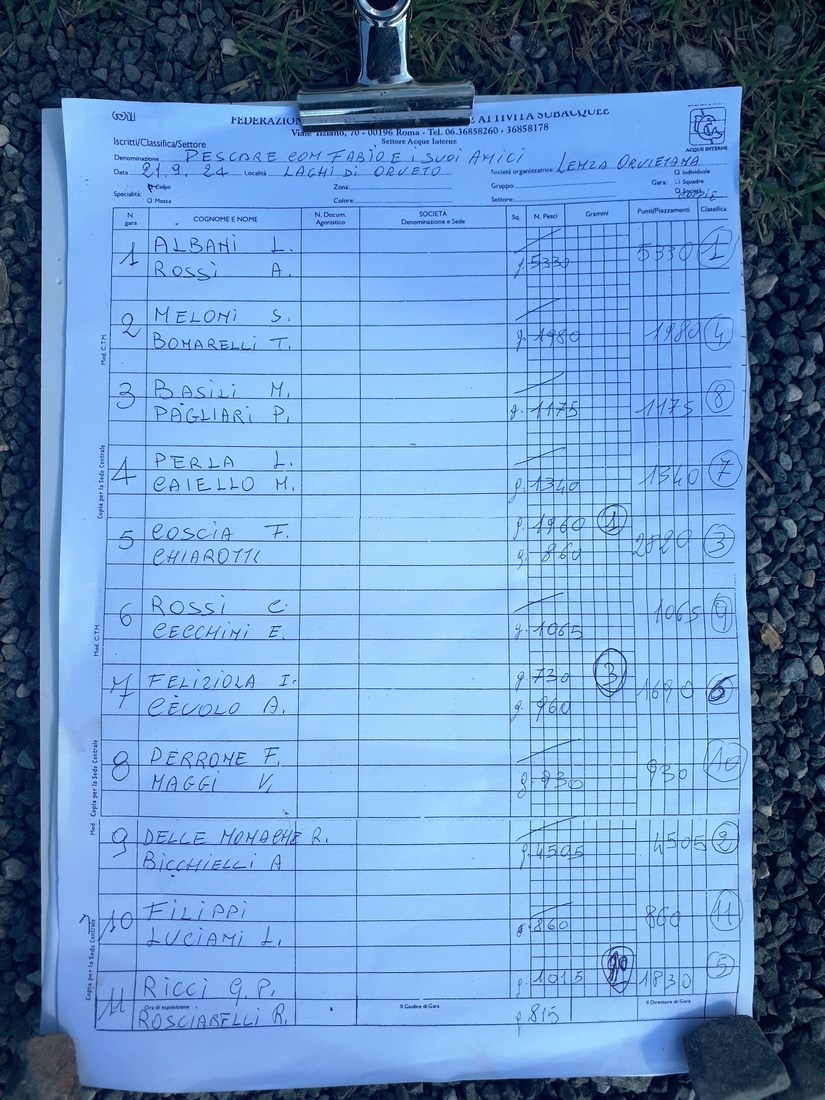 FEDERAZION E ATTIVITÀ SUBACQUEE
Viale Tiziano, 70 - 00196 Roma - Tel. 06.36858260 - 36858178
Iscritti/Classifica/Settore Settore Acque Interne ACQUE INTERNE
Denominazione PESCARE COM FABIO E I SUOI AMICI Società organizzatrice LENZA ORVIETANA
Data 21.9.24 Località LAGHI DI ORVETO Zona: Gruppo: Gara: Individuale
Squadre
Specialità: Colpo Società
Mosca Colore Settore: COPPIE
N. gara COGNOME E NOME N. Docum. Agonistico SOCIETÀ Denominazione e Sede Sq. N. Pesci Grammi Punti/Piazzamenti Classifica
1 ALBANI L. 5330 1
ROSSI A. g. 5330
2 MELONI S.
BONARELLI T. g. 1980 1980 4
Mod. C.T.M.
3 BASILI M. 8
PAGLIARI P. g. 1175 1175
Copia per la Sede Centrale
4 PERLA L. 7
CAIELLO M. g. 1340 1340
5 COSCIA F. g. 1960 1
CHIAROTTI g. 860 2820 3
Mod. C.T.M.
6 ROSSI C. 1065 9
CECCHINI E. g. 1065
7 FELIZIOLA I. g. 730 3
CEVOLO A. g. 960 1690 6
Copia per la Sede Centrale
8 PERRONE F. 10
MAGGI V. g. 930 930
Mod.
9 DELLE MONACHE R. 4505 2
BICCHIELLI A g. 4505
10 FILIPPI 860 11
LUCIAMI L. g. 860
Copia per la Sede Centrale
11 RICCI G.P. g. 1015 1830 5
Ora di esposizione Il Giudice di Gara Il Direttore di Gara
ROSCIARELLI R. g. 815